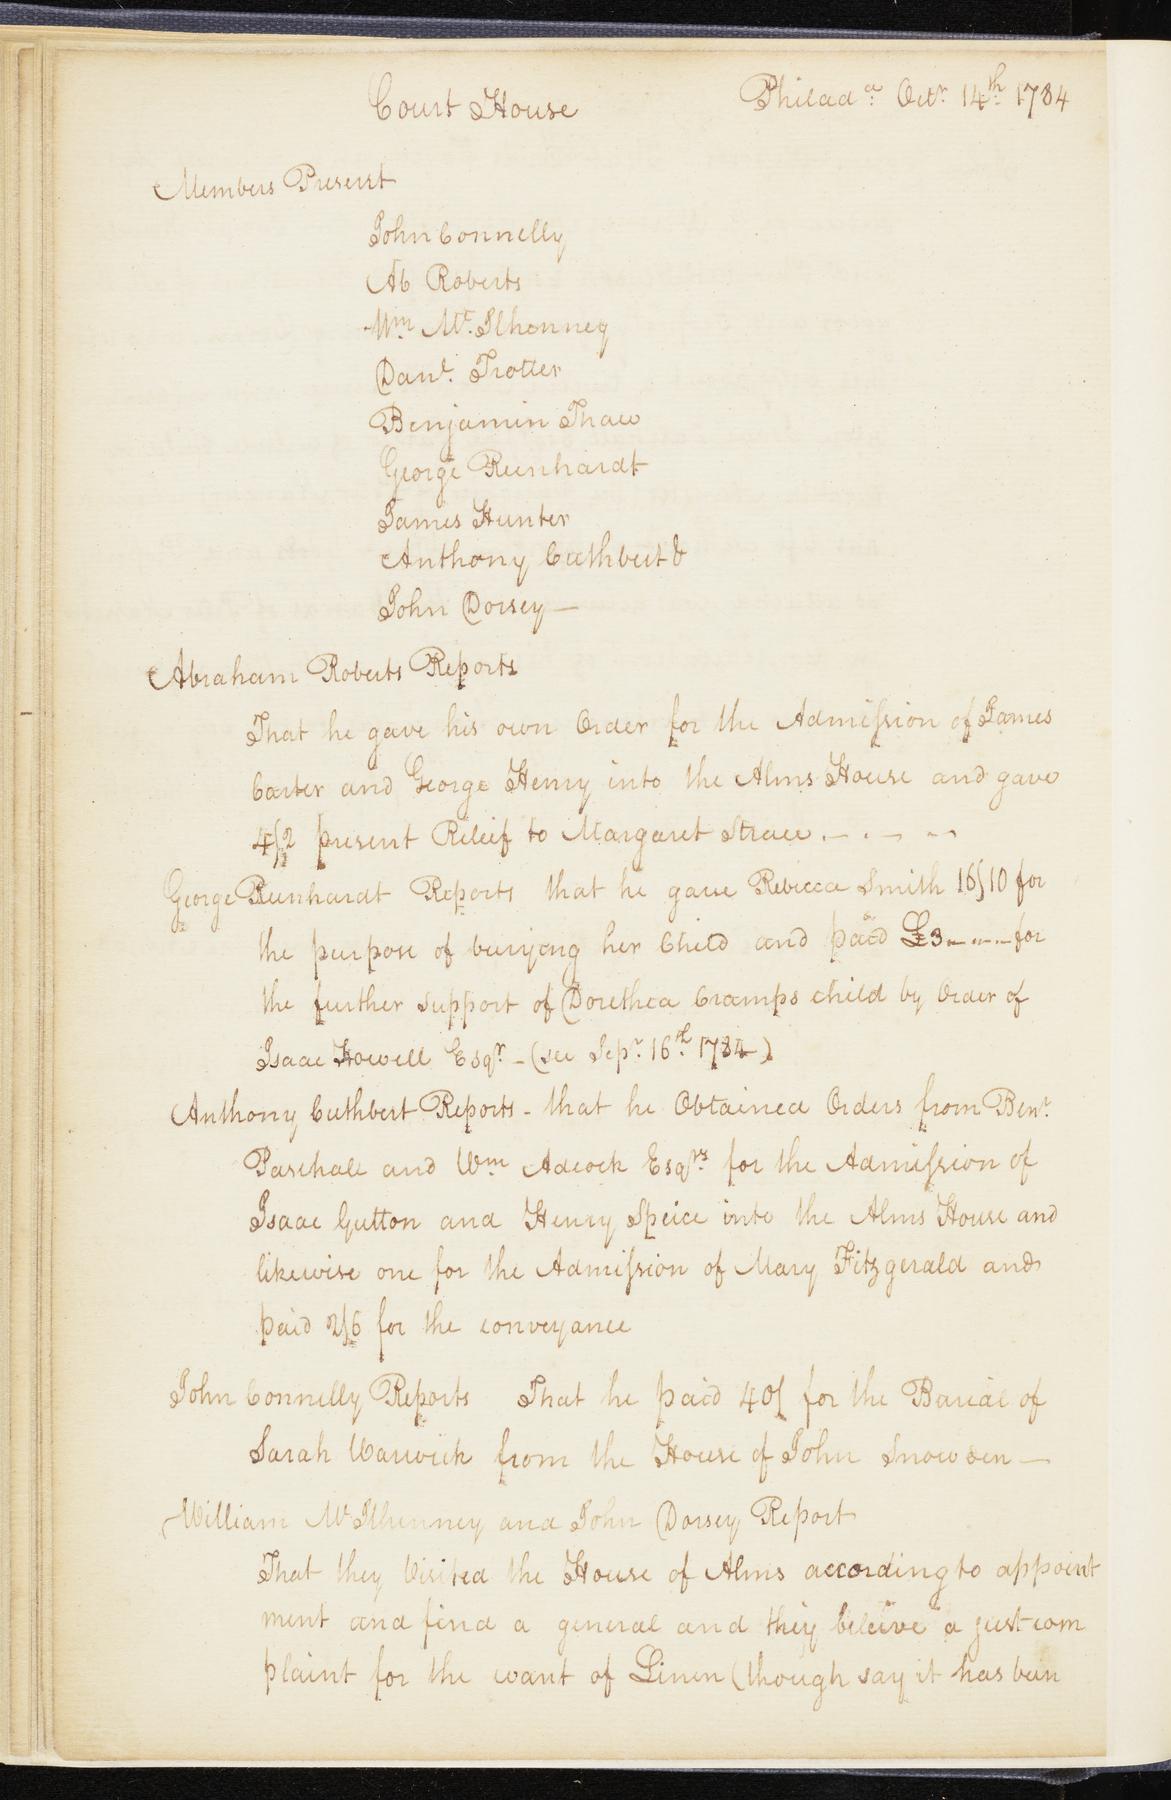 Court House Philada. Octr. 14th. 1784
Members Present
John Connelly
Ab Roberts
Wm. Mc. Ilhenney
Danl. Trotter
Benjamin Thaw
George Reinhardt
James Hunter
Anthony Cuthbert &
John Dorsey —
Abraham Roberts Reports
That he gave his own Order for the Admission of James
Carter and George Henry into the Alms House and gave
4/2 present Releif to Margaret
George Reinhardt Reports that he gave Rebecca Smith 16/10 for
the purpose of buriyng her Child and paid £3 - - - for
the further support of Dorethea Cramps child by Order of
Isaac Howell Esqr. - (see Sepr. 16th. 1784)
Anthony Cuthbert Reports - that he Obtained Orders from Benn.
Paschall and Wm Adcock Esqrs. for the Admission of
Isaac Gutton and Henry Speice into the Alms House and
likewise one for the Admission of Mary Fitzgerald and
paid 2/6 for the conveyance
John Connelly Reports That he paid 40/ for the Burial of
Sarah Warwick from the House of John Snowden —
William Mc Ilhenney and John Dorsey Report
That they Visited the House of Alms according to appoint
ment and find a general and they beleive a just com
plaint for the want of Linen (though say it has been